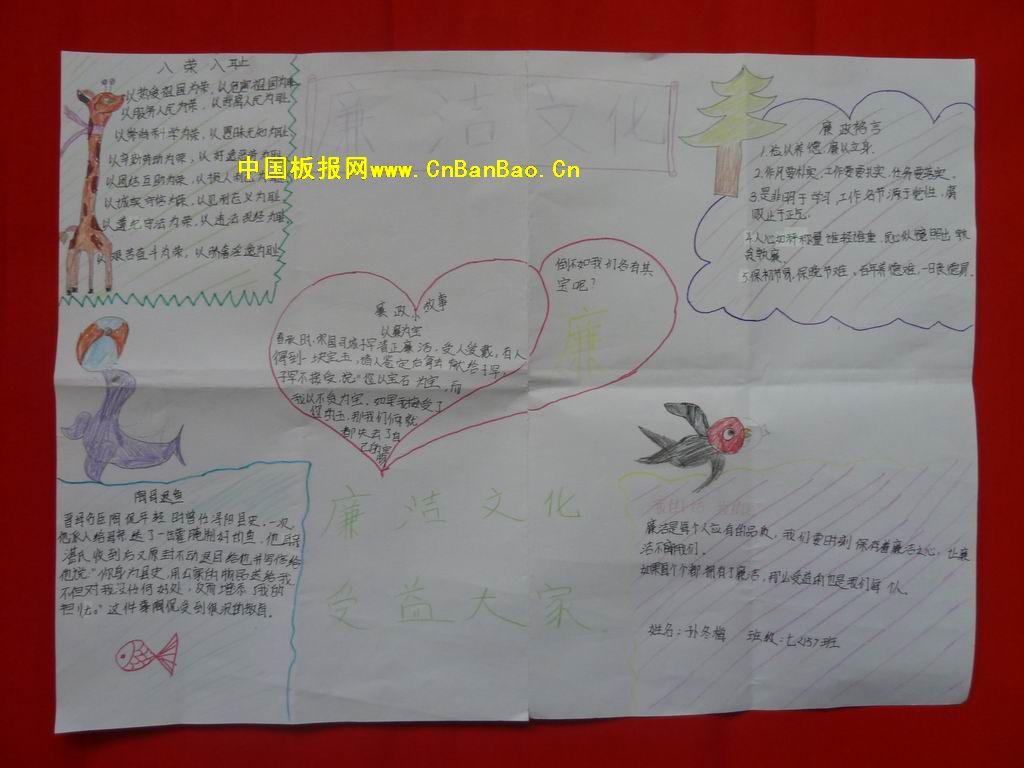 八荣八耻
以热爱祖国为荣，以危害祖国为耻
以服务人民为荣，以背离人民为耻
以崇尚科学为荣，以愚昧无知为耻
以辛勤劳动为荣，以好逸恶劳为耻
以团结互助为荣，以损人利己为耻
以诚实守信为荣，以见利忘义为耻
以遵纪守法为荣，以违法乱纪为耻
以艰苦奋斗为荣，以骄奢淫逸为耻
廉洁文化
中国板报网www.CnBanBao.Cn
廉政格言
1.俭以养德，廉以立身.
2.作风要朴实，工作要扎实，任务要落实.
3.是非明于学习，工作名节源于党性，腐
败止于正气.
4.人心如秤称量谁轻谁重，民心似镜照出孰
贪孰廉.
5.保初节易，保晚节难，百年养德难，一日丧德易.
廉政小故事
以廉为宝
春秋时，宋国司城子罕清正廉洁，受人爱戴，有人
得到一块宝玉，请人鉴定后拿去献给子罕，
子罕不接受，说"您以宝石为宝，而
我以不贪为宝，如果我接受了
您的玉，那我们俩就
都失去了自
己的宝
倒不如我们各有其
宝呢？
廉
陶母退鱼
晋朝名臣陶侃年轻时曾任浔阳县吏，一次，
他派人给母亲送了一罐腌制好的鱼，他母亲
湛氏收到后又原封不动退回给他并写信给
他说："你身为县吏，用公家的物品送给我，
不但对我没任何好处，反而增添了我的
担忧。"这件事陶侃受到很深的教育。
廉洁文化
受益大家
廉洁是每个人应有的品质，我们要时刻保存着廉洁之心，让廉
洁不离我们。
如果每个个都拥有了廉洁，那么受益的也是我们每个人。
姓名：孙冬梅 班级：七(157)班